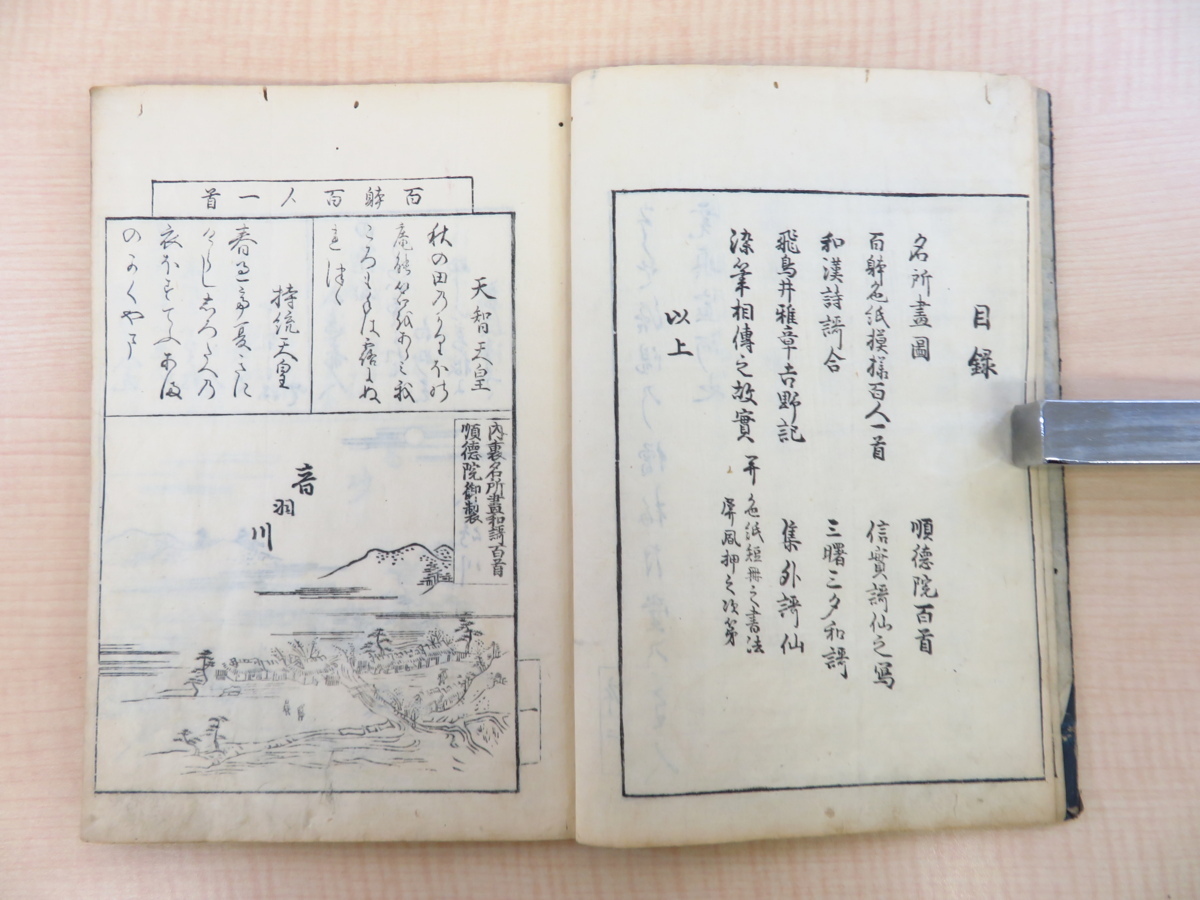 目録
名所畫圖　順德院百首
百躰色紙摸様百人一首　信實謌仙之寫
和漢詩謌合　三曙三夕和謌
飛鳥井雅章吉野記　集外謌仙
染筆相傳之故實　并　色紙短冊之書法
屏風押之次第
以上
百躰百人一首
天智天皇
秋の田乃かりほの
庵能苫越あらみ我
ころもては露にぬ
れつゝ
持統天皇
春過而夏きに
けらし志ろたへ乃
衣ほすてふあま
のかくやま
内裏名所畫和謌百首
順德院御製
音羽川
一